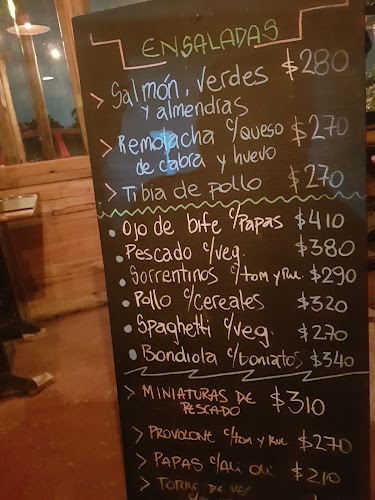 ENSALADAS
Salmón, verdes $280
y almendras
Remolacha c/queso $270
de cabra y huevo
Tibia de pollo $270
Ojo de bife c/Papas $410
Pescado c/veg. $380
Sorrentinos c/tom y Rue. $290
Pollo c/cereales $320
Spaghetti c/veg. $270
Bondiola c/boniatos $340
MINIATURAS DE $310
PESCADO
PROVOLONE c/tom y Rue $270
PAPAS c/Ali Oli $210
TORRE DE VEG